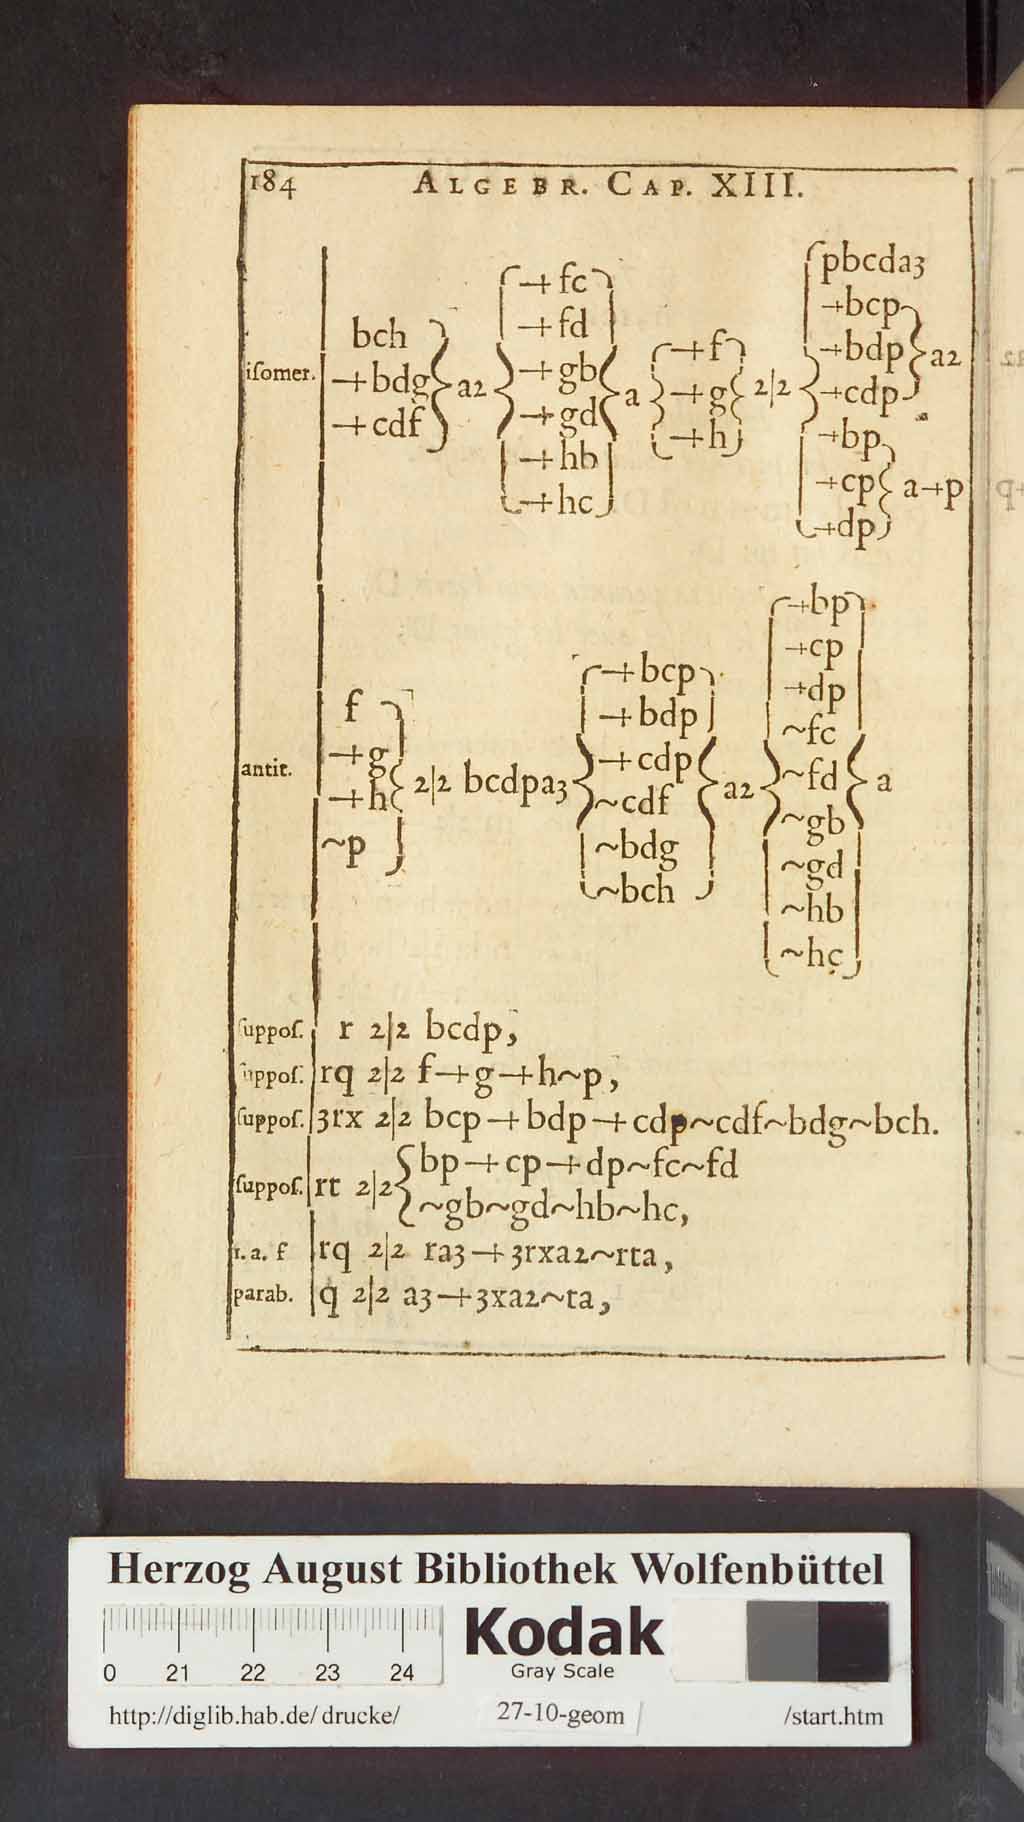 184 ALGEBR. CAP. XIII.
isomer.
bch
+bdg
+cdf
a2
+fc
+fd
+gb
+gd
+hb
+hc
a
+f
+g
+h
2|2
pbcda3
+bcp
+bdp
+cdp
a2
+bp
+cp
+dp
a+p
antit.
f
+g
+h
~p
2|2 bcdpa3
+bcp
+bdp
+cdp
~cdf
~bdg
~bch
a2
+bp
+cp
+dp
~fc
~fd
~gb
~gd
~hb
~hc
a
suppos. r 2|2 bcdp,
suppos. rq 2|2 f+g+h~p,
suppos. 3rx 2|2 bcp+bdp+cdp~cdf~bdg~bch.
suppos. rt 2|2 {bp+cp+dp~fc~fd
~gb~gd~hb~hc,
1. a. f rq 2|2 ra3+3rxa2~rta,
parab. q 2|2 a3+3xa2~ta,
Herzog August Bibliothek Wolfenbüttel
0 21 22 23 24
Kodak
Gray Scale
http://diglib.hab.de/drucke/ 27-10-geom /start.htm